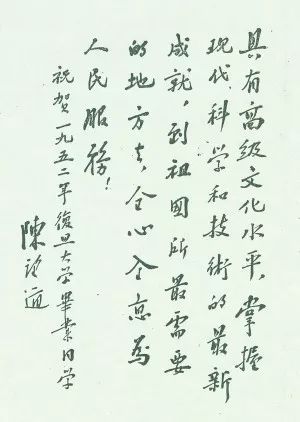 具有高级文化水平，掌握
现代科学和技術的最新
成就，到祖國所最需要
的地方去，全心全意為
人民服務！
祝賀一九五二年復旦大学畢業同学
陳望道